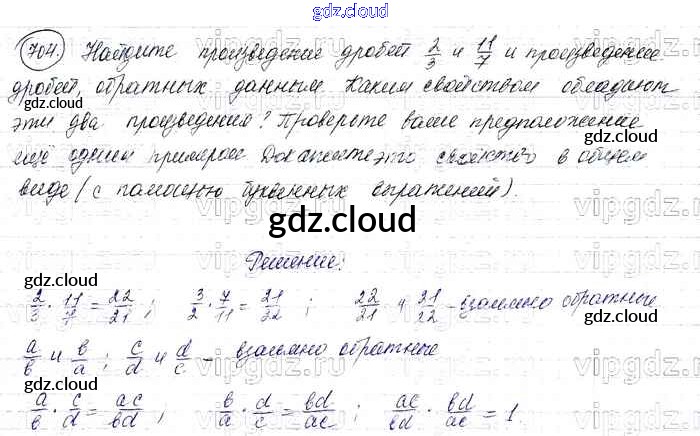 gdz.cloud
704. Найдите произведение дробей 2/3 и 11/7 и произведение
дробей, обратных данным. Каким свойством обладают
gdz.cloud
эти два произведения? Проверьте ваше предположение
gdz.cloud
ещё одним примером. Докажите это свойство в общем
виде (с помощью буквенных выражений).
gdz.cloud
Решение:
gdz.cloud
2/3 · 11/7 = 22/21 ; 3/2 · 7/11 = 21/22 ; 22/21 и 21/22 - взаимно обратные
gdz.cloud
a/b и b/a ; c/d и d/c - взаимно обратные
gdz.cloud
a/b · c/d = ac/bd ; b/a · d/c = bd/ac ; ac/bd · bd/ac = 1.